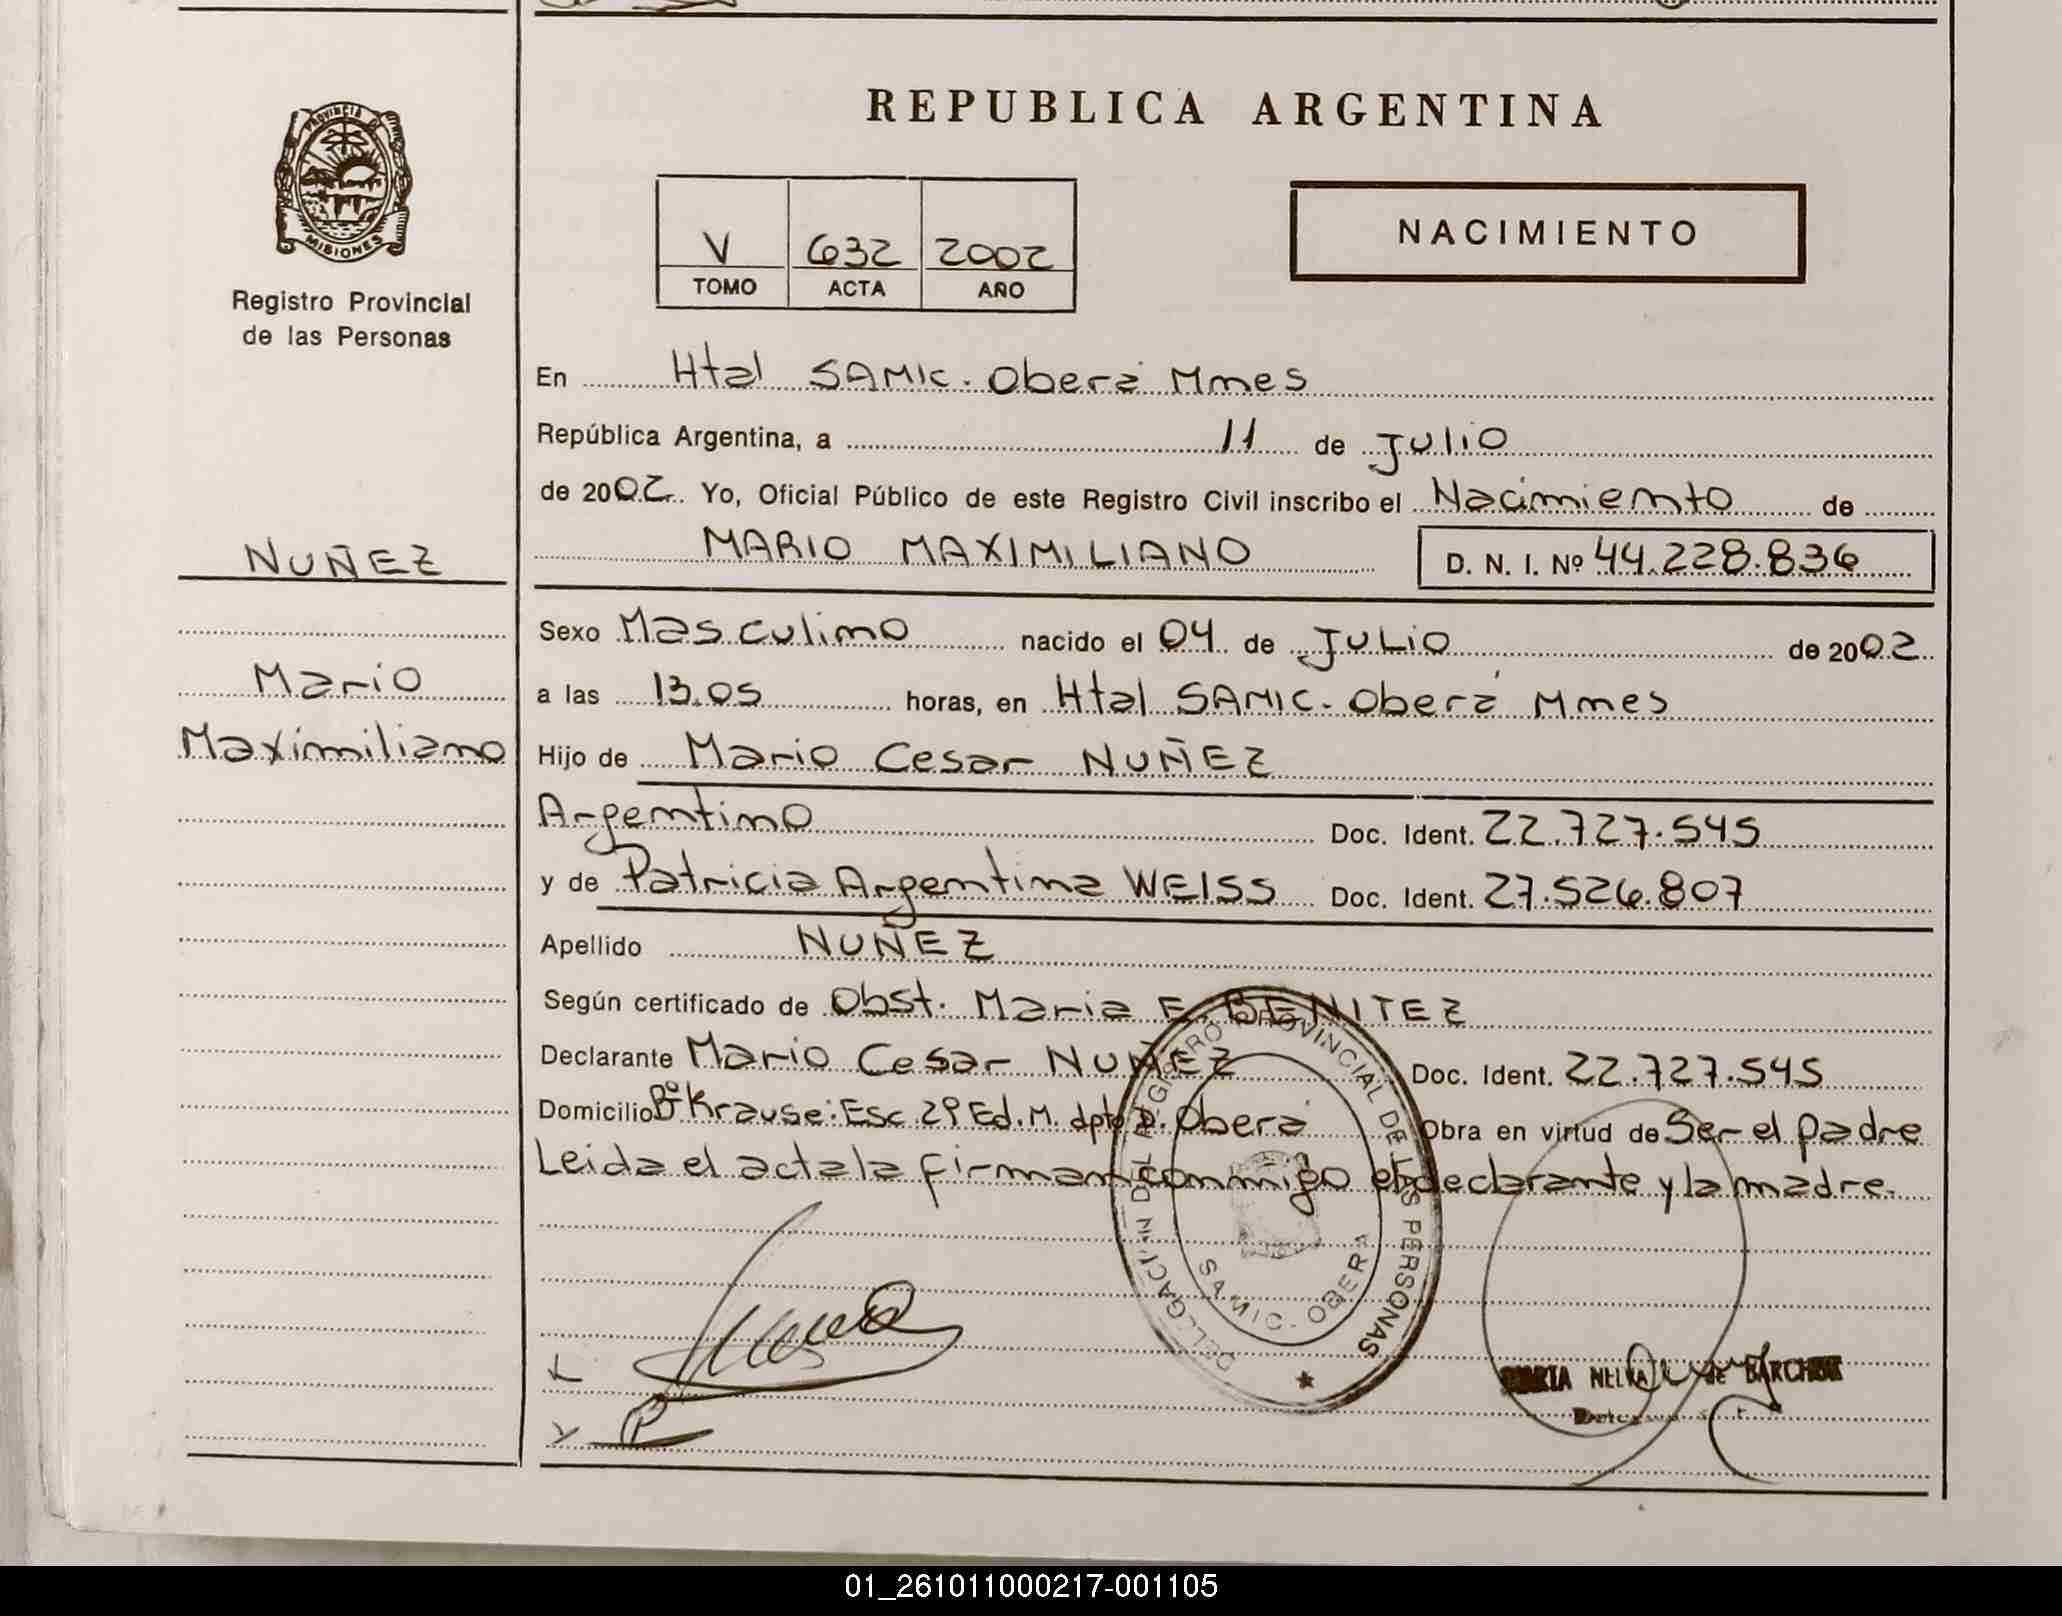 REPUBLICA ARGENTINA
PROVINCIA DE
MISIONES
Registro Provincial
de las Personas
V 632 2002
TOMO ACTA AÑO
NACIMIENTO
En Htal SAMIC. Oberá Mnes
República Argentina, a 11 de Julio
de 2002. Yo, Oficial Público de este Registro Civil inscribo el Nacimiento de
NUÑEZ
MARIO MAXIMILIANO
D. N. I. Nº 44.228.836
Sexo Masculino nacido el 04 de JULIO de 2002.
Mario
a las 13.05 horas, en Htal SAMIC. Oberá Mnes
Maximiliano
Hijo de Mario Cesar NUÑEZ
Argentino Doc. Ident. 22.727.545
y de Patricia Argentina WEISS Doc. Ident. 27.526.807
Apellido NUÑEZ
Según certificado de Obst. Maria E. BENITEZ
Declarante Mario Cesar NUÑEZ Doc. Ident. 22.727.545
Domicilio Bº Krause: Esc. 29 Ed. M. dpto Oberá Obra en virtud de Ser el padre
Leida el acta la firman conmigo el declarante y la madre.
DELEGACION DEL REGISTRO PROVINCIAL DE LAS PERSONAS
SAMIC - OBERA
NELVA DE
01_261011000217-001105